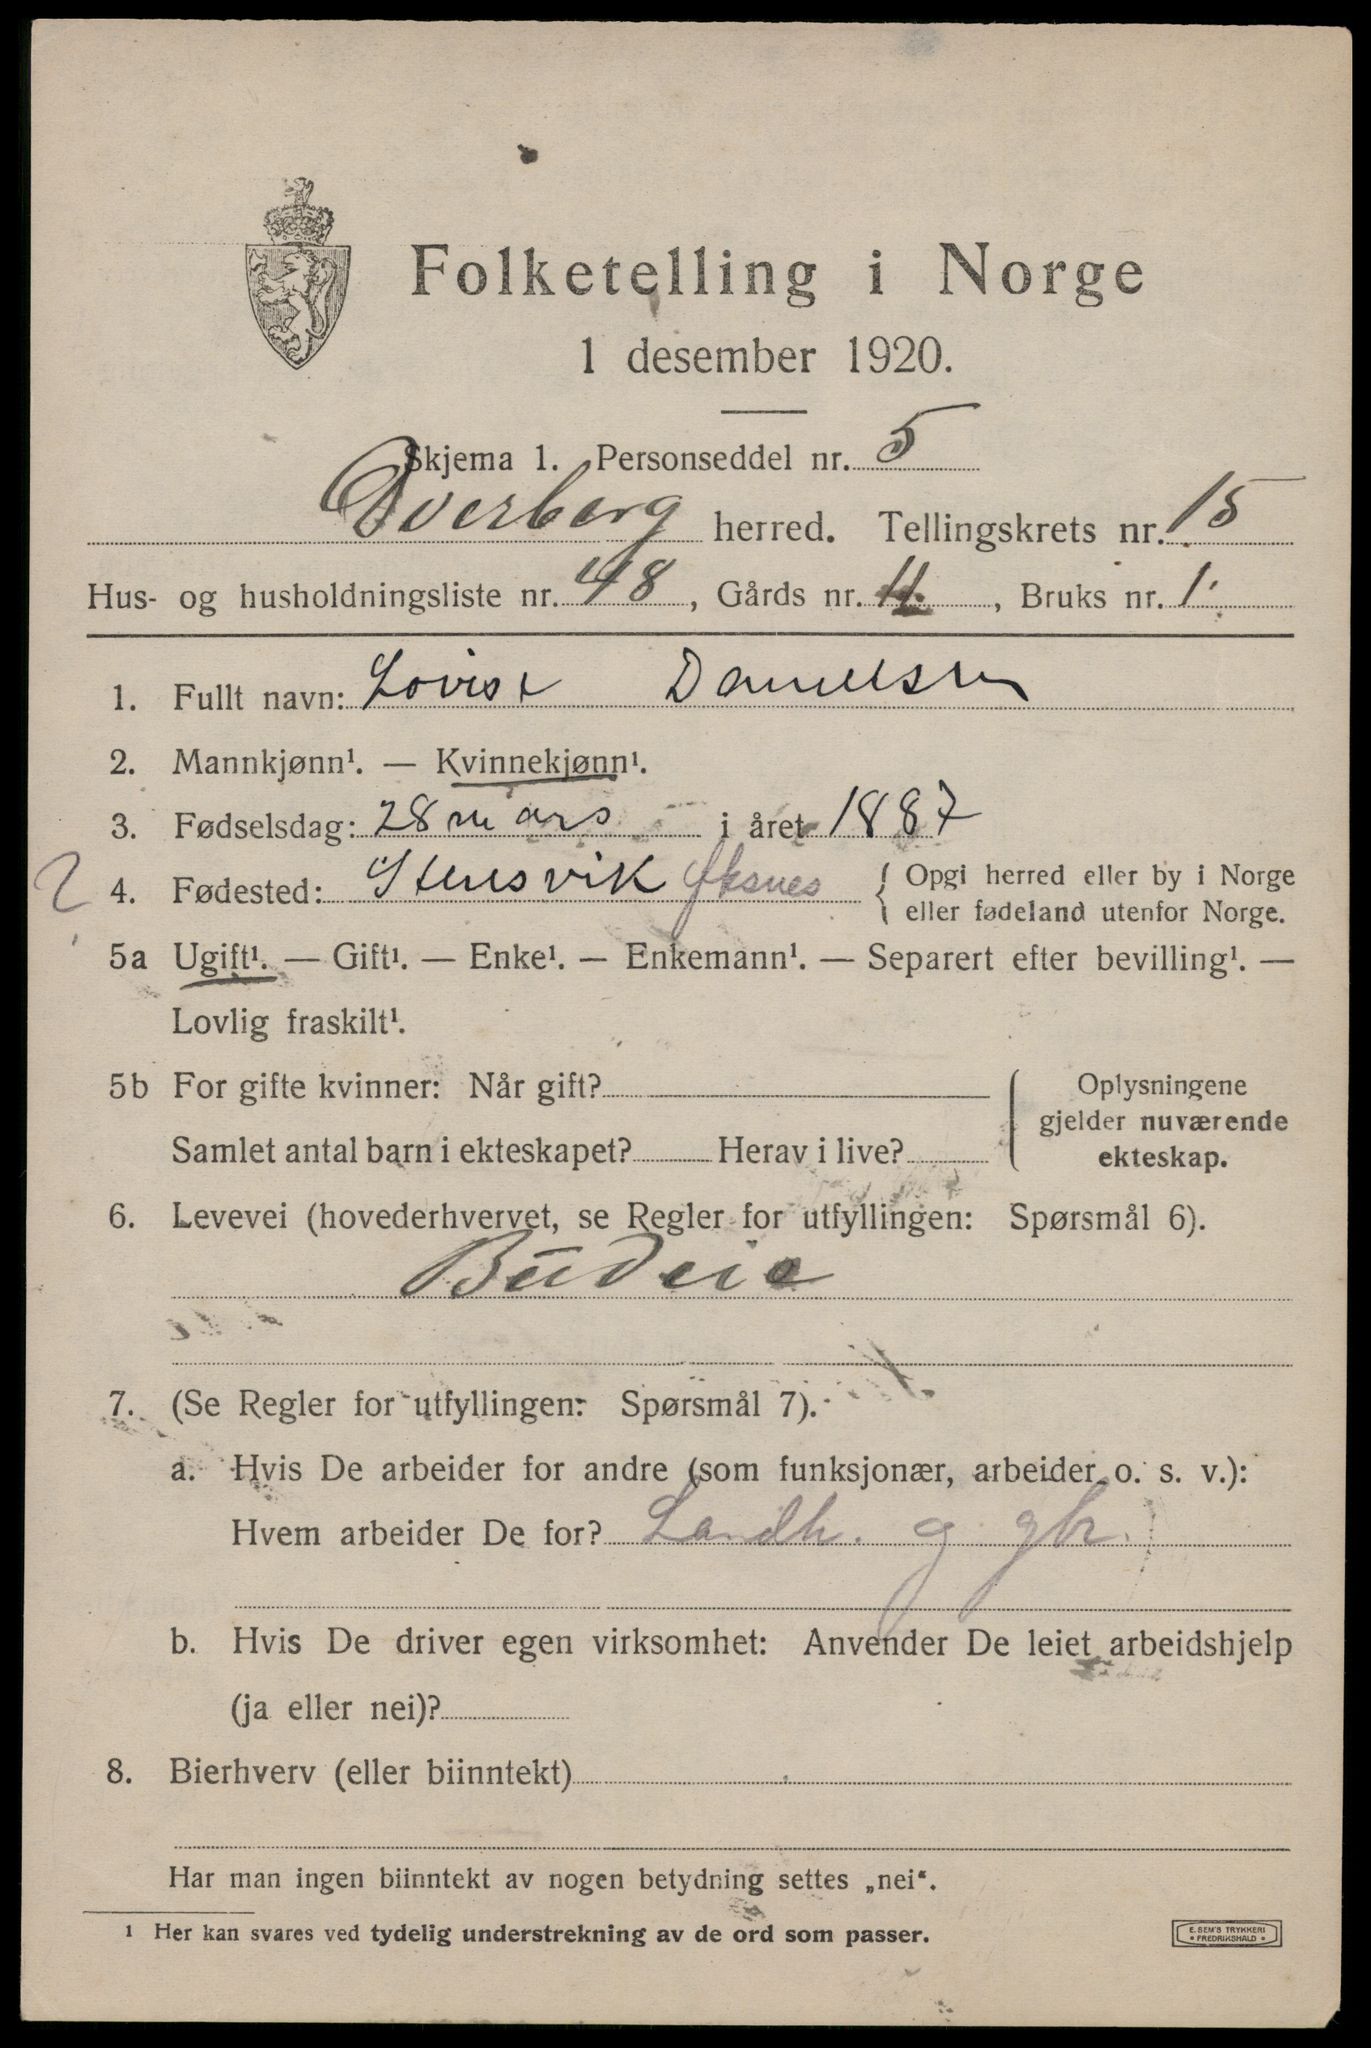 Folketelling i Norge
1 desember 1920.
Skjema 1. Personseddel nr. 5
Dverberg herred. Tellingskrets nr. 15
Hus- og husholdningsliste nr. 48, Gårds nr. 11, Bruks nr. 1
1. Fullt navn: Lovise Danielsen
2. Mannkjønn¹. — Kvinnekjønn¹.
3. Fødselsdag: 28 mars i året 1887
? 4. Fødested: Stensvik Øksnes { Opgi herred eller by i Norge
eller fødeland utenfor Norge.
5a Ugift¹. — Gift¹. — Enke¹. — Enkemann¹. — Separert efter bevilling¹. —
Lovlig fraskilt¹.
5b For gifte kvinner: Når gift?
Samlet antal barn i ekteskapet? Herav i live?
Oplysningene
gjelder nuværende
ekteskap.
6. Levevei (hovederhvervet, se Regler for utfyllingen: Spørsmål 6).
Budeie
7. (Se Regler for utfyllingen: Spørsmål 7).
a. Hvis De arbeider for andre (som funksjonær, arbeider o. s. v.):
Hvem arbeider De for? Landh. g gbr.
b. Hvis De driver egen virksomhet: Anvender De leiet arbeidshjelp
(ja eller nei)?
8. Bierhverv (eller biinntekt)
Har man ingen biinntekt av nogen betydning settes „nei“.
¹ Her kan svares ved tydelig understrekning av de ord som passer.
E. SEM'S TRYKKERI
• FREDRIKSHALD •